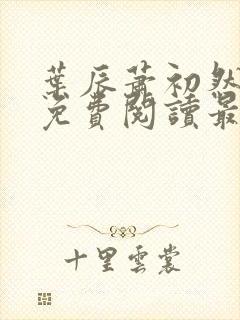 葉辰蕭初然
免費閱讀最
十里雲裳